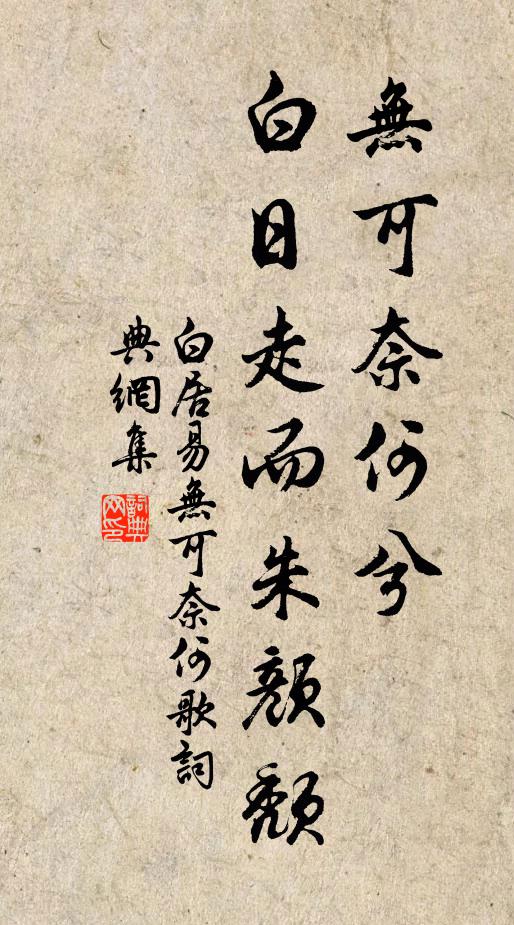 無可奈何兮
白日走而朱顏頹
白居易無可奈何歌詞
典網集
詞典网印